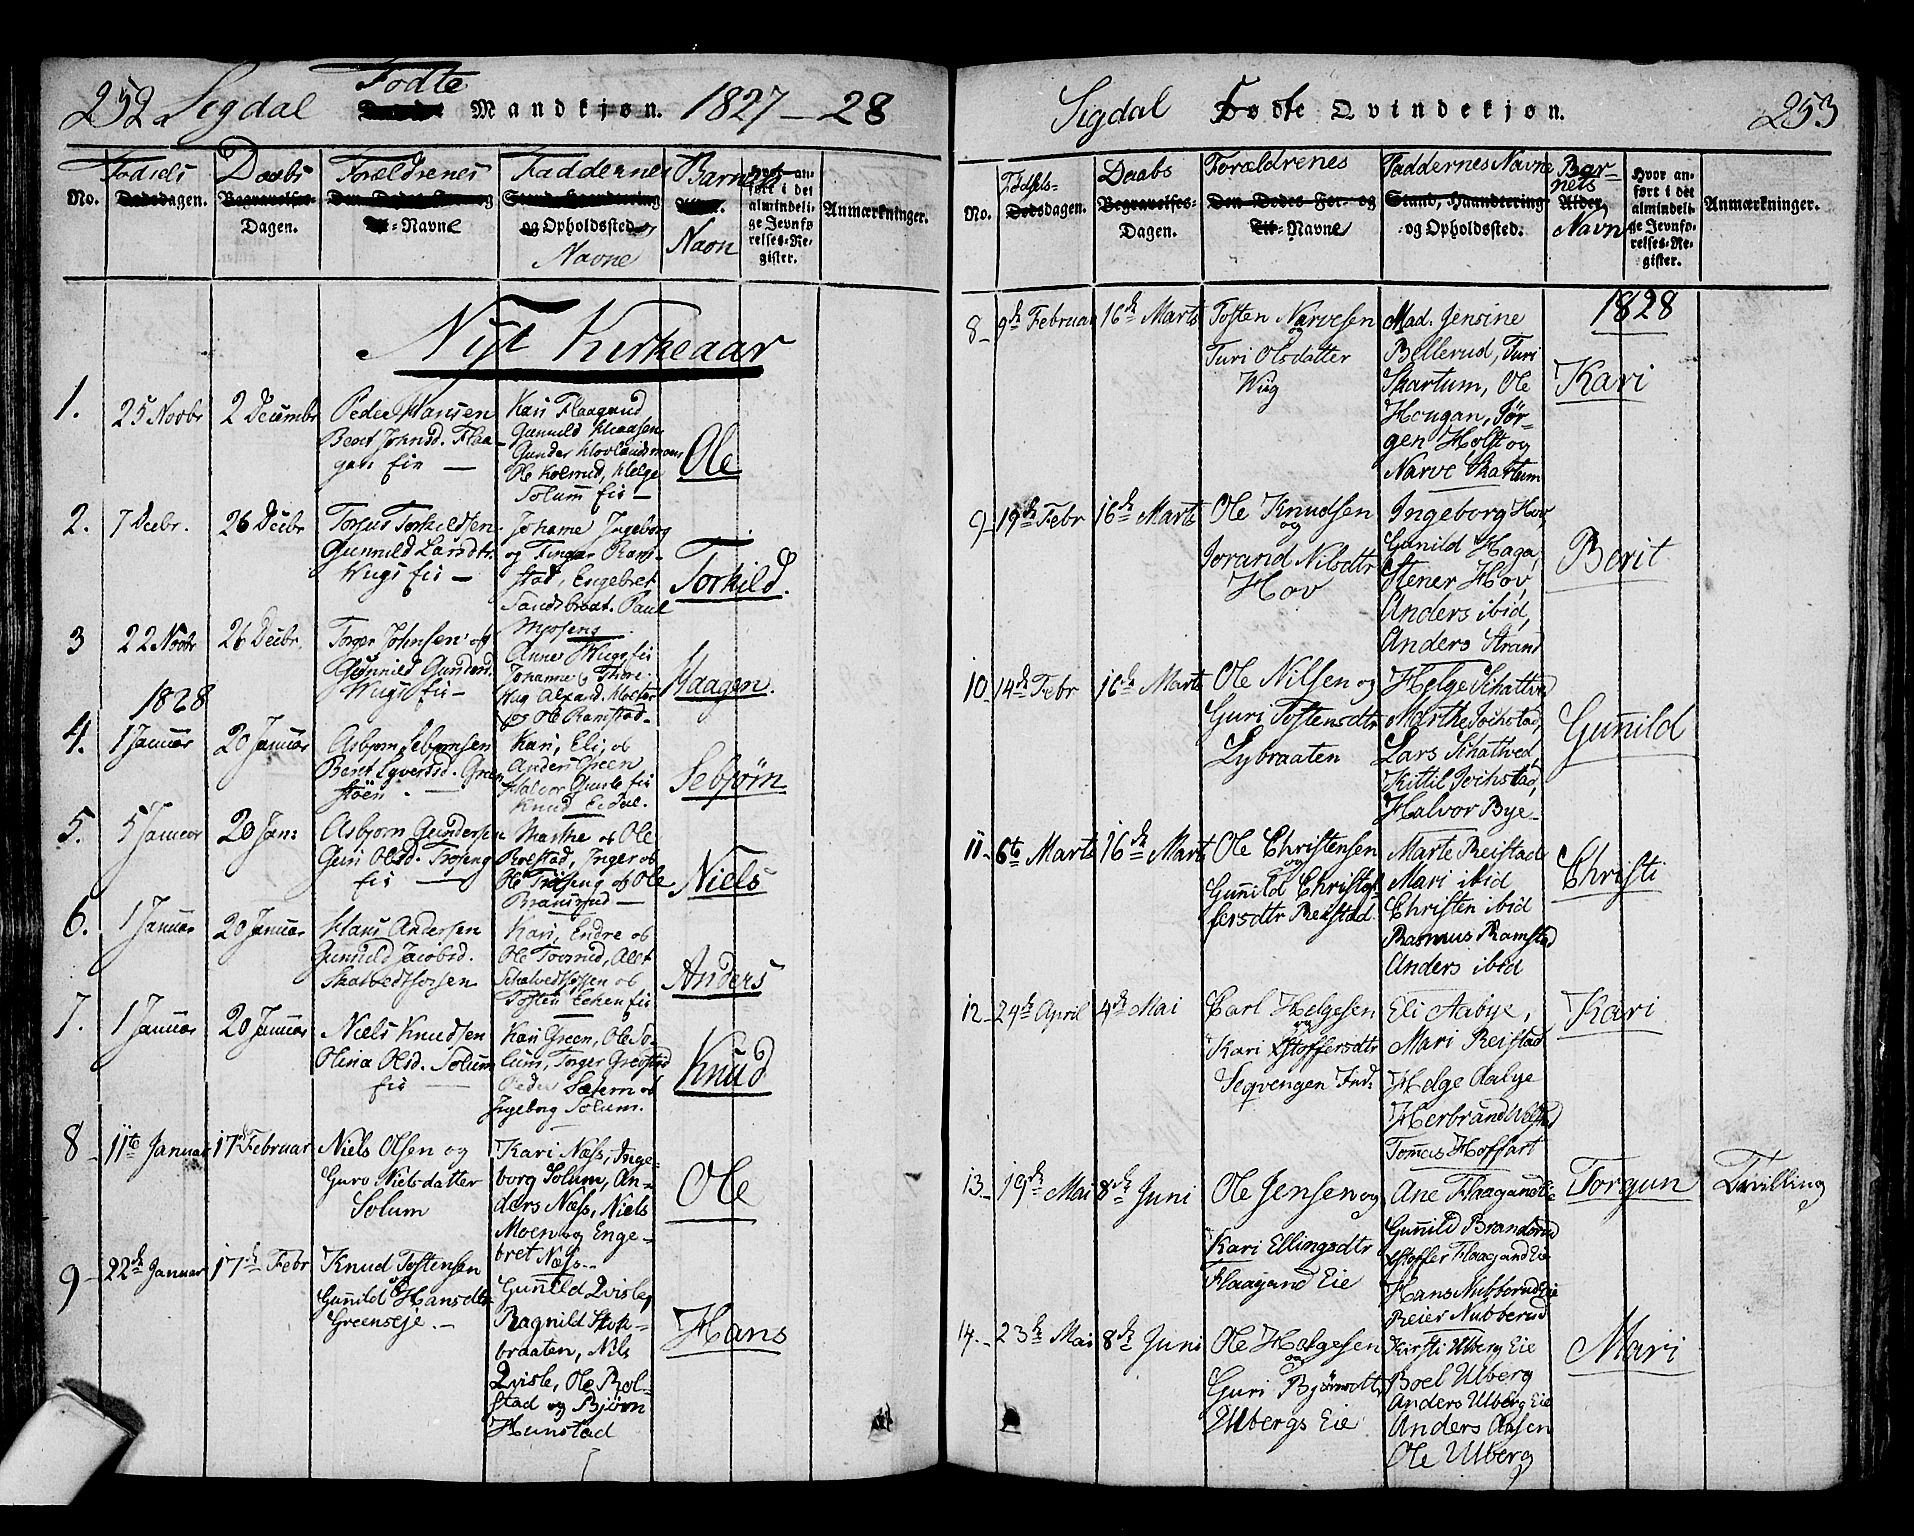 252 Sigdal Fodte Mandkjøn. 1827 – 28
No.
Fodsels
Dødsdagen.
Daabs
Begravelses-
Dagen.
Forældrenes
Den Dødes For- og
Til-Navne
Faddernes
Stand, Haandtering
og Opholdssted
Navne
Barnets
Navn
Hvor an-
ført i det
almindeli-
ge Jevnfø-
relses-Re-
gister.
Anmærkninger.
Nyt Kirkeaar
1.
25 Novbr
2 Decembr
Peder Hansen
Berit Johnsd. Flaa-
gan Eie —
Kari Flaagand
Gunnild Klaasen
Ole Kolsrud, Helge
Solum Eie —
Ole
2.
7 Decbr.
26 Decbr
Torkildsen
Gunnild Larsdtr.
Wugs Eie —
Johanne Ingeborg
og Ram-
stad, Engebret
Sandsbraat. Paul
Moseng
Torkild.
3
22 Novbr
26 Decbr.
Torger Johnsen og
Gunnild Gunders.
Wugs Eie —
Anne Wugs Eie
Johanne
og Ole Ramstad –
Haagen.
1828
4.
1 Januar
20 Januar
Asbjørn Sebjørnsen
Berit Green
Kari, Eli, og
Anders Green
Halvor Eie
Knud Eidal.
Sebjørn
5.
5 Januar
20 Jan:
Asbjørn Gundersen
Guri Olsd. Troseng
Eie —
Marthe og Ole
Rolstad, Inger og
Ole Troseng og Ole
Bransrud —
Niels
6.
1 Januar
20 Januar
Hans Andersen
Gunnild Jacobsd.
Skatvedtforsen
Kari, Endre og
Ole Toverud,
og
Tosten Eken Eie
Anders
7.
1 Januar
20 Januar
Niels Knudsen
Olina Olsd. Solum
Eie —
Kari Green, Ole So-
lum, Torger Grøstad
Peder Sætern og
Ingeborg Solum.
Knud
8
11te Januar
17 Februar
Niels Olsen og
Guro Nielsdatter
Solum
Kari Næss, Inge-
borg Solum, An-
ders Næss, Niels
Moen og Enge-
bret Næss –
Ole
9
22de Januar
17de Febr
Knud Tostensen
og
Gunnild Hansdtr
Greenseje –
Gunnild Qvisle,
Ragnild Stok-
braaten, Nils
Qvisle, Ole Rol-
stad og Bjørn
Henstad
Hans
Sigdal Fodte Qvindekjøn. 253
No.
Fødsels-
Dødsdagen.
Daabs
Begravelses-
Dagen.
Forældrenes
Den Dødes For- og
Til-Navne
Faddernes Navne
Stand, Haandtering
og Opholdssted.
Bar-
nets
Alder.
Navn
Hvor an-
ført i det
almindeli-
ge Jevnfø-
relses-Re-
gister.
Anmærkninger.
1828
8 –
9de Februar
16de Marts
Tosten Narvesen
og
Turi Olsdatter
Wiig
Mad. Jensine
Bellerud, Turi
Skartum, Ole
Hougan, Jør-
gen Holst og
Narve Skartum
Kari
9 –
19de Febr
16de Marts
Ole Knudsen
og
Jorand Nilsdtr
Hov
Ingeborg Hov,
Gunild Haga,
Stener Hov,
Anders ibid,
Anders Strand
Berit
10
14de Febr
16de Marts
Ole Nilsen og
Guri Tostensdtr
Lybraaten
Helge Schatved
Marthe Jochstad,
Lars Schatved,
Kittil Jochstad,
Halvor Bye –
Gunild
11 –
6te Marts
16de Marts
Ole Christensen
og
Gunild Christof-
fersdtr Reistad
Marte Reistad
Mari ibid
Christen ibid
Rasmus Ramstad
Anders ibid
Christi
12 –
24de April
4de Mai
Carl Helgesen
og
Kari Stoffersdtr
Seqvengen Ind.
Eli Aabye,
Mari Reistad
Helge Aabye
Herbrand
Tomas Hoffart
Kari
13 –
19de Mai
8de Juni
Ole Jensen og
Kari Ellingsdtr
Flaagand Eie
Ane Flaagand Eie
Gunild Brandsrud
Stoffer Flaagand Eie
Hans Nubberud Eie
Reier Nubberud
Torgun
Tvilling
14. –
23de Mai
8de Juni
Ole Helgesen
og
Guri Bjørnsdtr
Ulbergs Eie
Kirsti Ulberg Eie
Boel Ulberg
Anders Ulberg Eie
Anders Aasen
Ole Ulberg
Mari